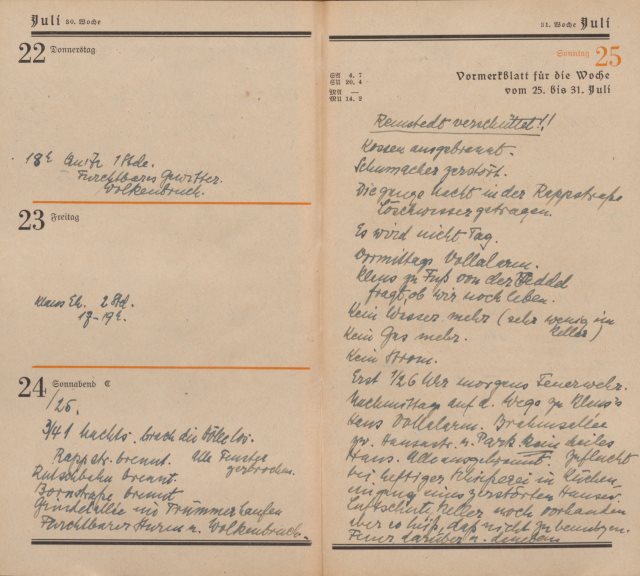 Juli 30. Woche
22 Donnerstag
18h 1 Stde.
Furchtbares Gewitter.
Wolkenbruch.
23 Freitag
Klaus Eh. 2 Std.
17-19h.
24 Sonnabend ☾
/25.
3/4 1 nachts brach die Hölle los.
Rappstr. brennt. Alle Fenster
zerbrochen.
Rutschbahn brennt.
Bornstraße brennt
Grindelallee ein Trümmerhaufen
Furchtbarer Sturm u. Wolkenbruch.
31. Woche Juli
Sonntag 25
SA 4. 7
SU 20. 4
MA —
MU 14. 2
Vormerkblatt für die Woche
vom 25. bis 31. Juli
Remstedt verschüttet!!
Kossen ausgebrannt.
Schumacher zerstört.
Die ganze Nacht in der Rappstraße
Löschwasser getragen.
Es wird nicht Tag.
Vormittags Vollalarm.
Klaus zu Fuß von der Veddel
fragt, ob wir noch leben.
Kein Wasser mehr (sehr wenig im
Keller)
Kein Gas mehr.
Kein Strom.
Erst 1/2 6 Uhr morgens Feuerwehr.
Nachmittag auf d. Wege zu Klaus's
Haus Vollalarm. Brahmsallee
zw. Hansastr. u. Park kein heiles
Haus. Alle ausgebrannt. Zuflucht
bei heftiger Schießerei in
eines zerstörten Hauses.
Luftschutzkeller noch vorhanden
aber so heiß, daß nicht zu benutzen.
Feuer darüber u. daneben